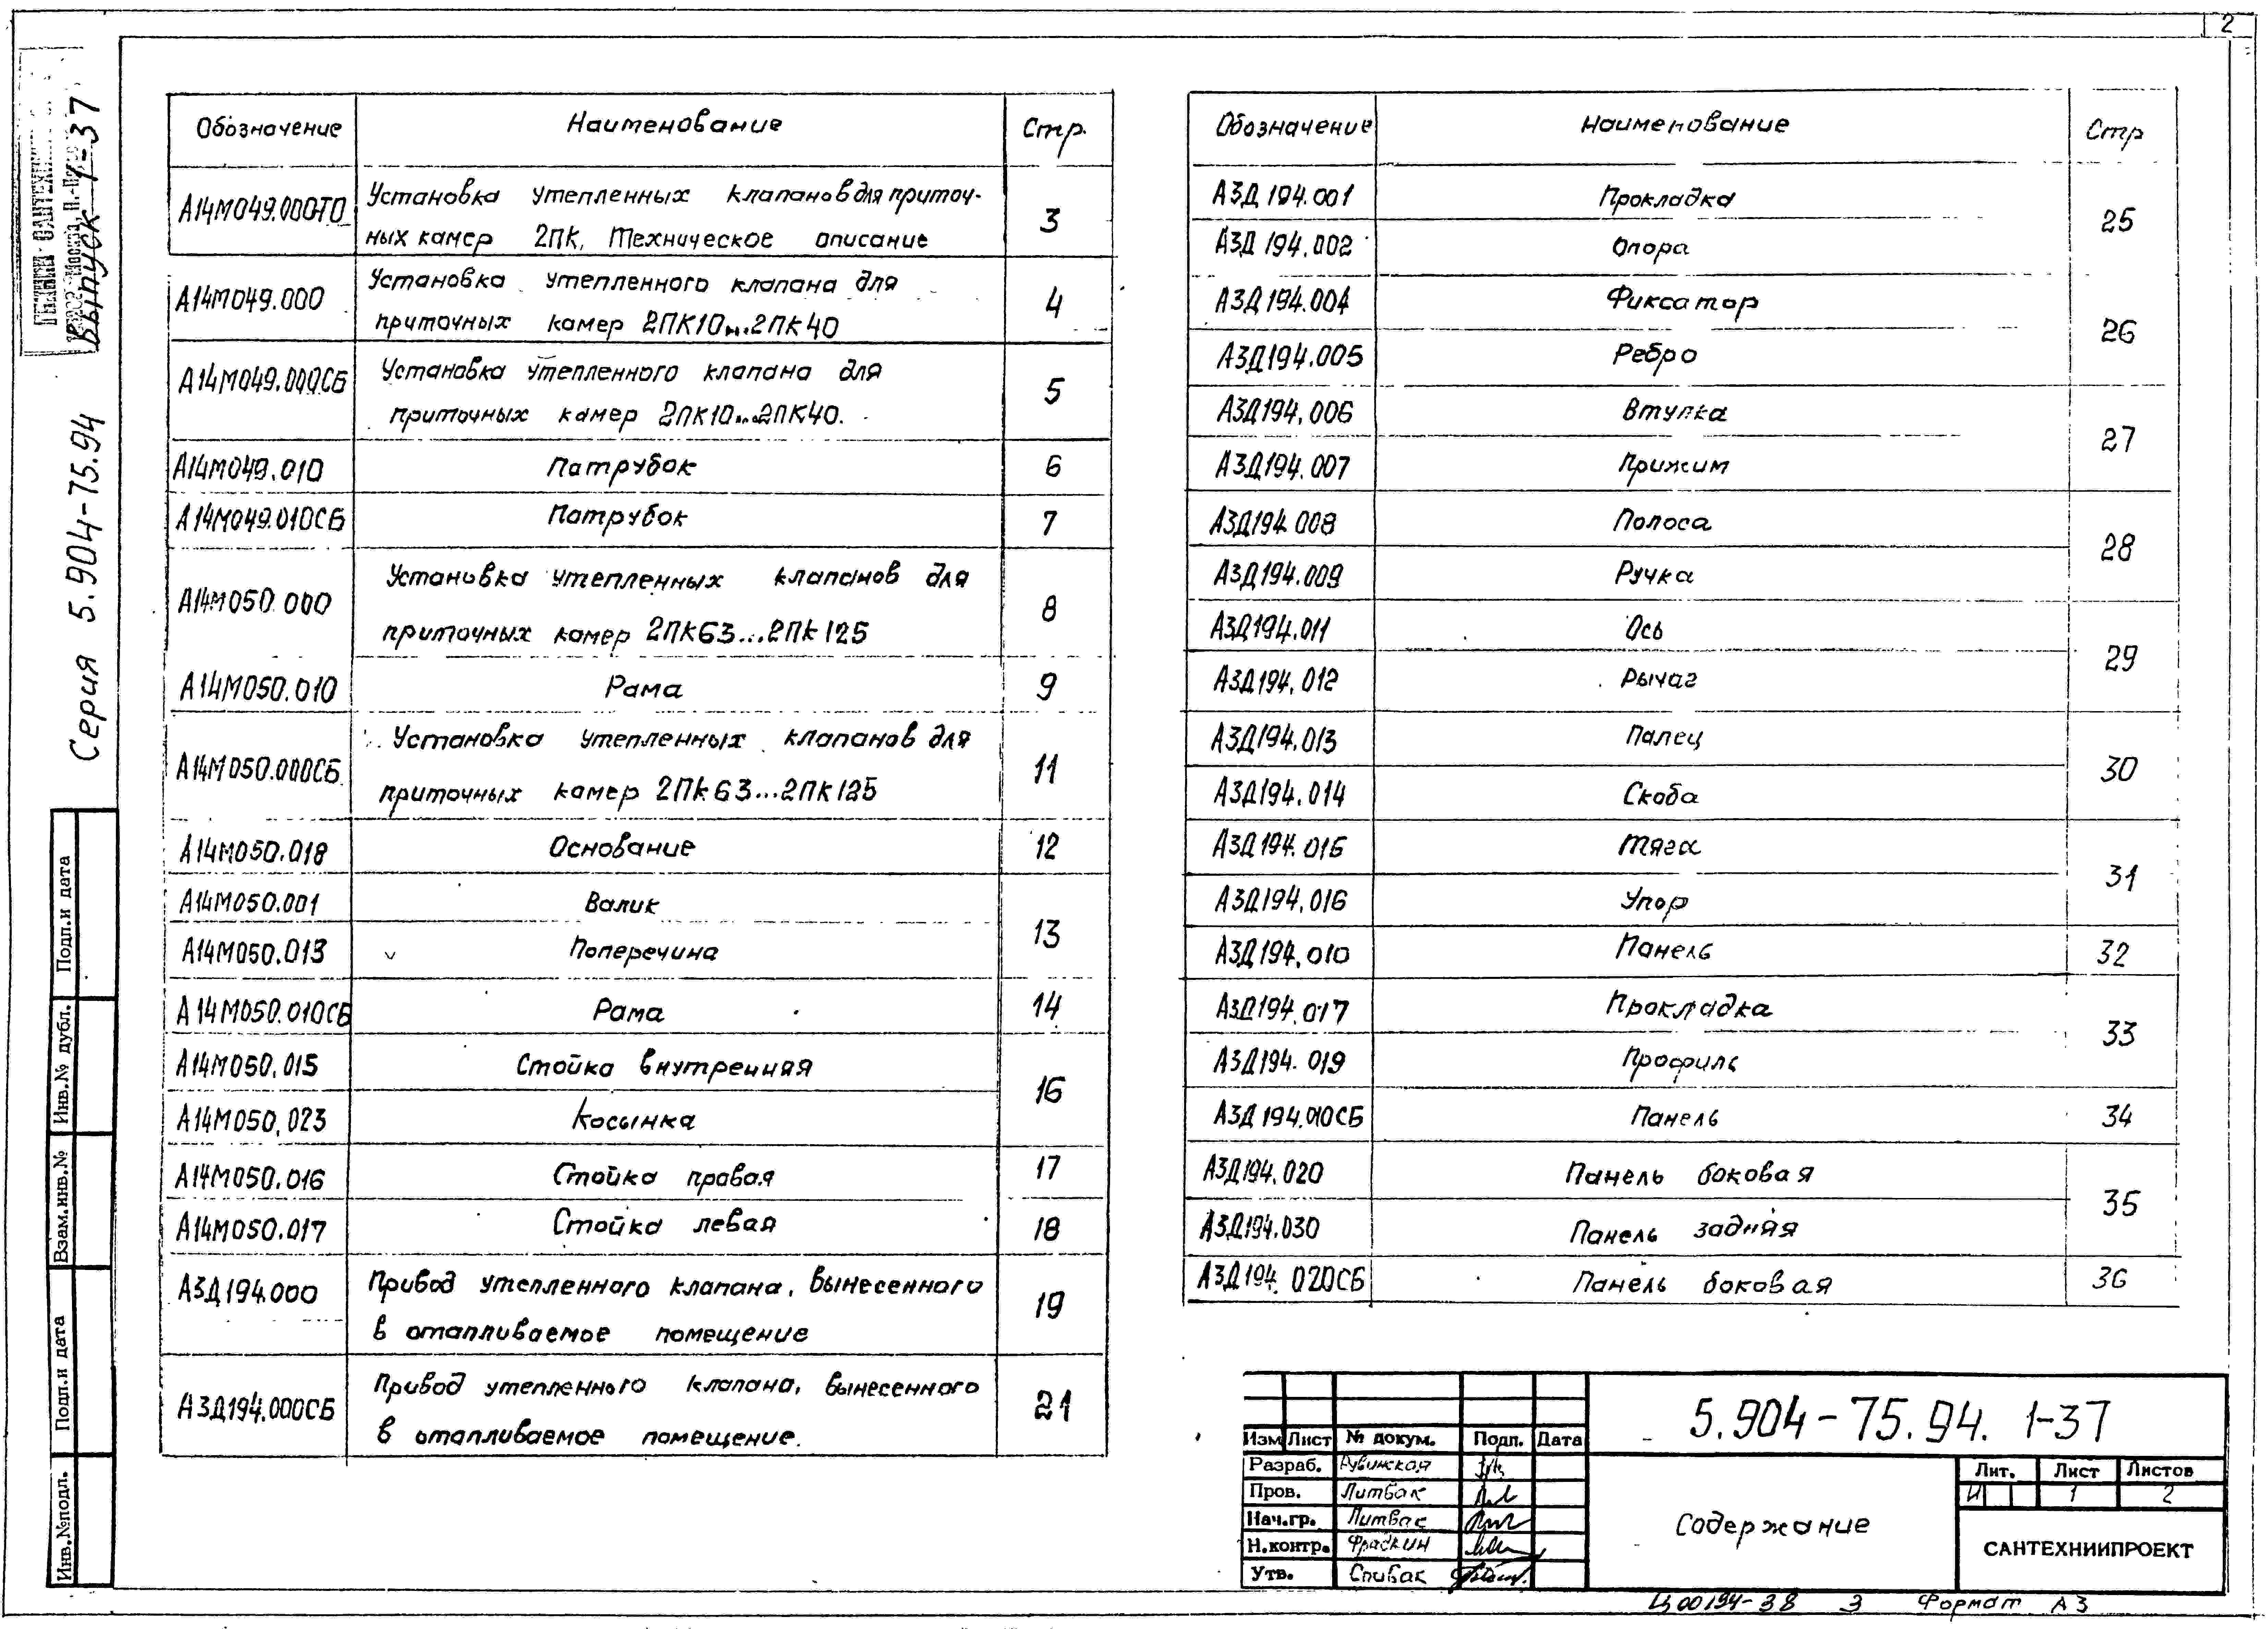 2
Выпуск 1-37
Серия 5.904-75.94
Обозначение Наименование Стр.
А14М049.000ТО Установка утепленных клапанов для приточ-
ных камер 2ПК. Техническое описание 3
А14М049.000 Установка утепленного клапана для
приточных камер 2ПК10...2ПК40 4
А14М049.000СБ Установка утепленного клапана для
приточных камер 2ПК10...2ПК40. 5
А14М049.010 Патрубок 6
А14М049.010СБ Патрубок 7
А14М050.000 Установка утепленных клапанов для
приточных камер 2ПК63...2ПК125 8
А14М050.010 Рама 9
А14М050.000СБ Установка утепленных клапанов для
приточных камер 2ПК63...2ПК125 11
А14М050.018 Основание 12
А14М050.001 Валик 13
А14М050.013 Поперечина
А14М050.010СБ Рама 14
А14М050.015 Стойка внутренняя 16
А14М050.023 Косынка
А14М050.016 Стойка правая 17
А14М050.017 Стойка левая 18
АЗД194.000 Привод утепленного клапана, вынесенного
в отапливаемое помещение 19
АЗД194.000СБ Привод утепленного клапана, вынесенного
в отапливаемое помещение. 21
Обозначение Наименование Стр
АЗД194.001 Прокладка 25
АЗД194.002 Опора
АЗД194.004 Фиксатор 26
АЗД194.005 Ребро
АЗД194.006 Втулка 27
АЗД194.007 Прижим
АЗД194.008 Полоса 28
АЗД194.009 Ручка
АЗД194.011 Ось 29
АЗД194.012 Рычаг
АЗД194.013 Палец 30
АЗД194.014 Скоба
АЗД194.016 Тяга 31
АЗД194.016 Упор
АЗД194.010 Панель 32
АЗД194.017 Прокладка 33
АЗД194.019 Профиль
АЗД194.010СБ Панель 34
АЗД194.020 Панель боковая 35
АЗД194.030 Панель задняя
АЗД194.020СБ Панель боковая 36
Подп.и дата
Инв.№ дубл.
Взам.инв.№
Подп.и дата
Инв.№подл.
5.904-75.94. 1-37
Изм Лист № докум. Подп. Дата
Разраб. Рубинская
Пров. Литвак
Нач.гр. Литвак
Н.контр. Фрадкин
Утв. Спивак
Содержание
Лит. Лист Листов
И 1 2
САНТЕХНИИПРОЕКТ
Ц00194-38 3 Формат А3